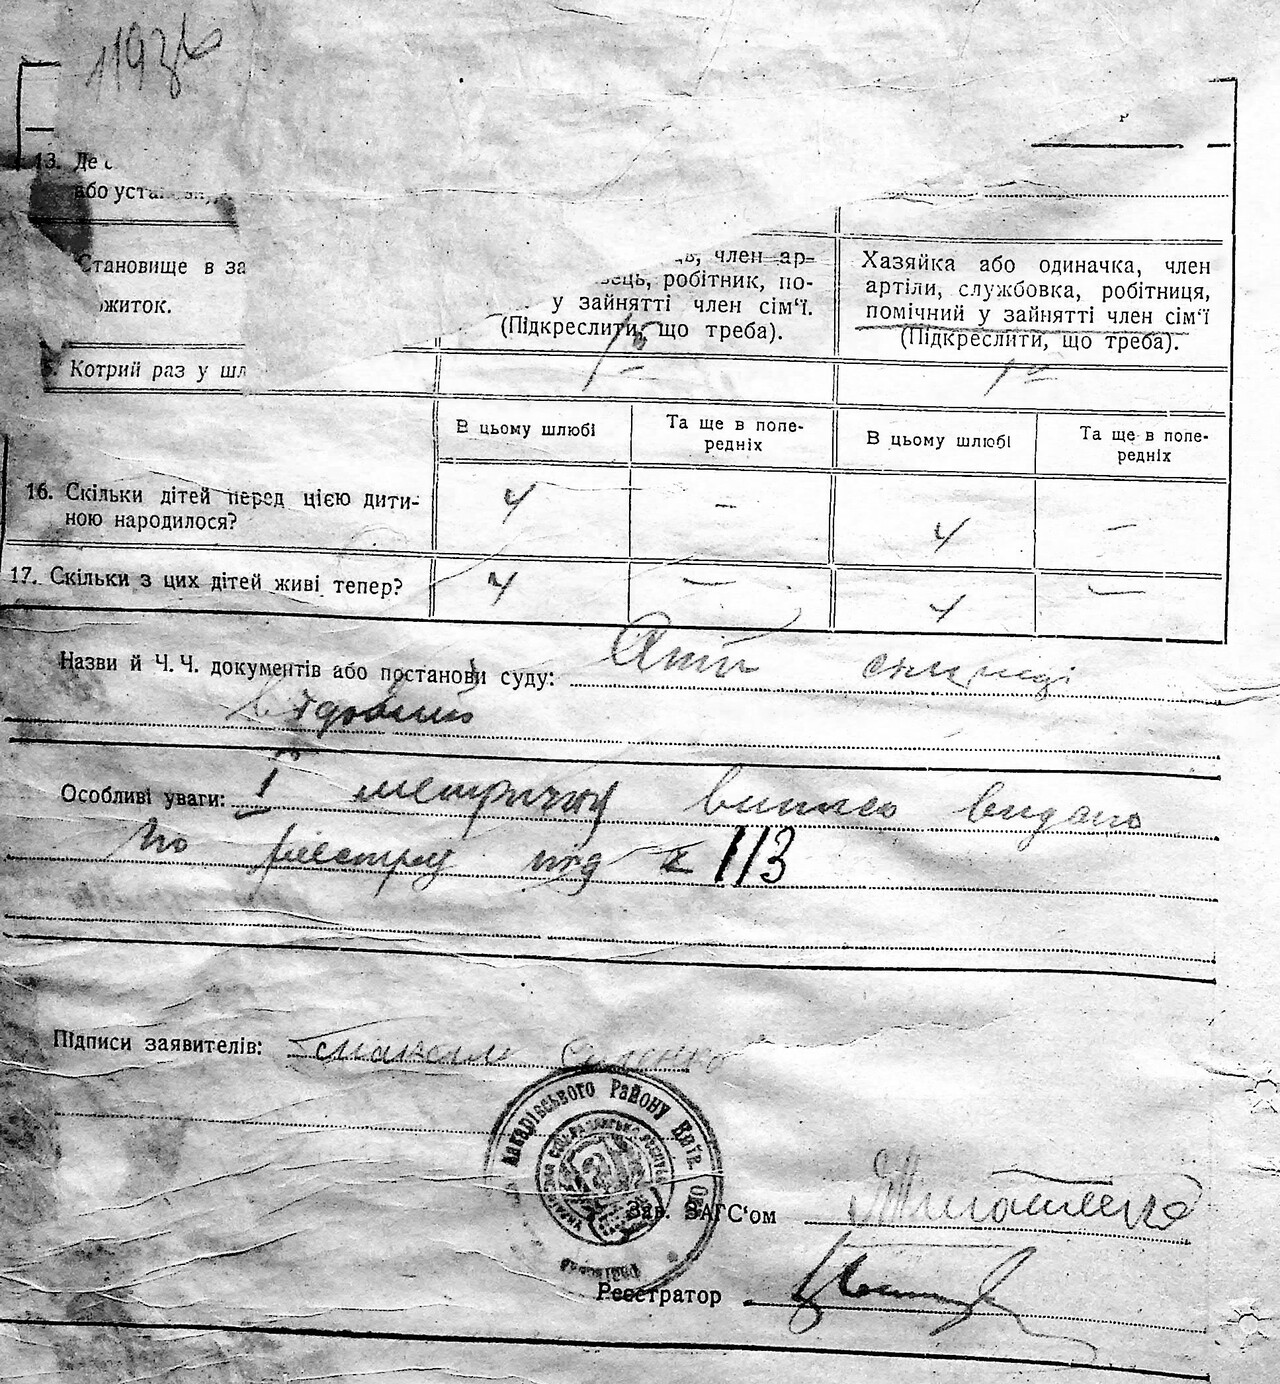 13. Де
або уста
Становище в за
житок.
член ар-
вець, робітник, по-
у зайнятті член сім‘ї.
(Підкреслити, що треба).
Хазяйка або одиначка, член
артіли, службовка, робітниця,
помічний у зайнятті член сім‘ї
(Підкреслити, що треба).
Котрий раз у шл
В цьому шлюбі
Та ще в попе-
редніх
В цьому шлюбі
Та ще в попе-
редніх
16. Скільки дітей перед цією дити-
ною народилося?
4 – 4 –
17. Скільки з цих дітей живі тепер?
4 – 4 –
Назви й Ч. Ч. документів або постанови суду:
Особливі уваги: метричну випись видано
по реєстру під № 113
Підписи заявителів:
Макарівського Району Київ. Окр
Зав. ЗАГС‘ом
Реєстратор